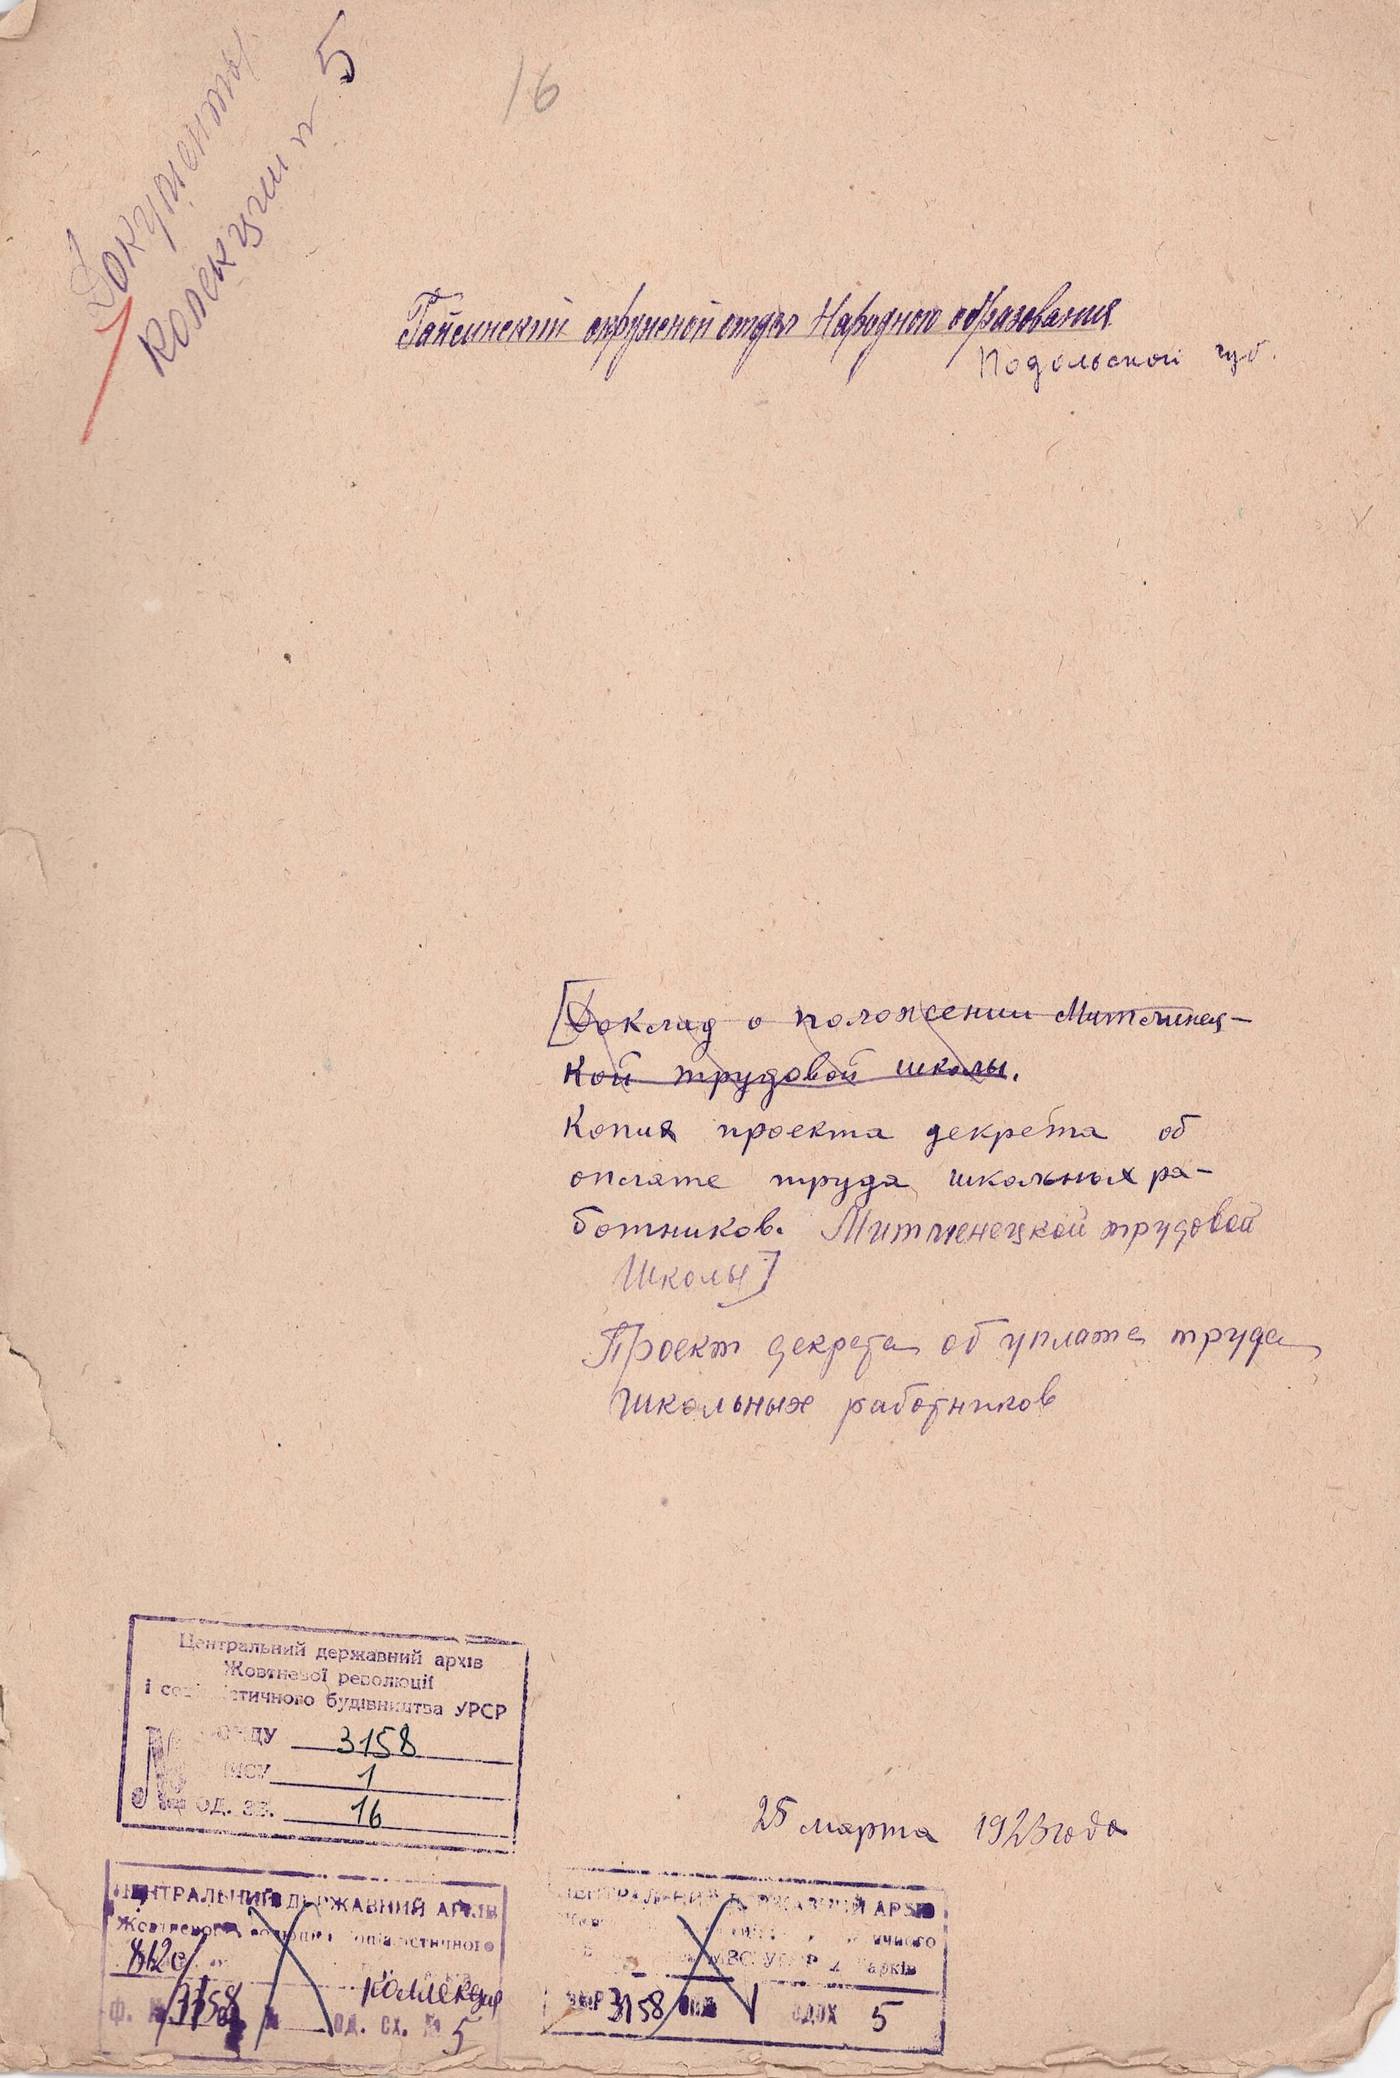 Документы
Колекции п 5
16
Гайсинский окружной отдел Народного образования
Подольской губ.
[Доклад о положении Митлинец-
кой трудовой школы.
Копия проекта декрета об
оплате труда школьных ра-
ботников. Митлинецкой трудовой
школы]
Проект декрета об уплате труда
школьных работников
Центральний державний архів
Жовтневої революції
і соціалістичного будівництва УРСР
№ фонду 3158
опису 1
од. зб. 16
25 марта 1923 года
ЦЕНТРАЛЬНИЙ ДЕРЖАВНИЙ АРХІВ
812с/
Коллекция
Ф. № 3158 № од. сх. № 5
ЦЕНТРАЛЬНИЙ ДЕРЖАВНИЙ АРХІВ
Харків
3158 одох 5